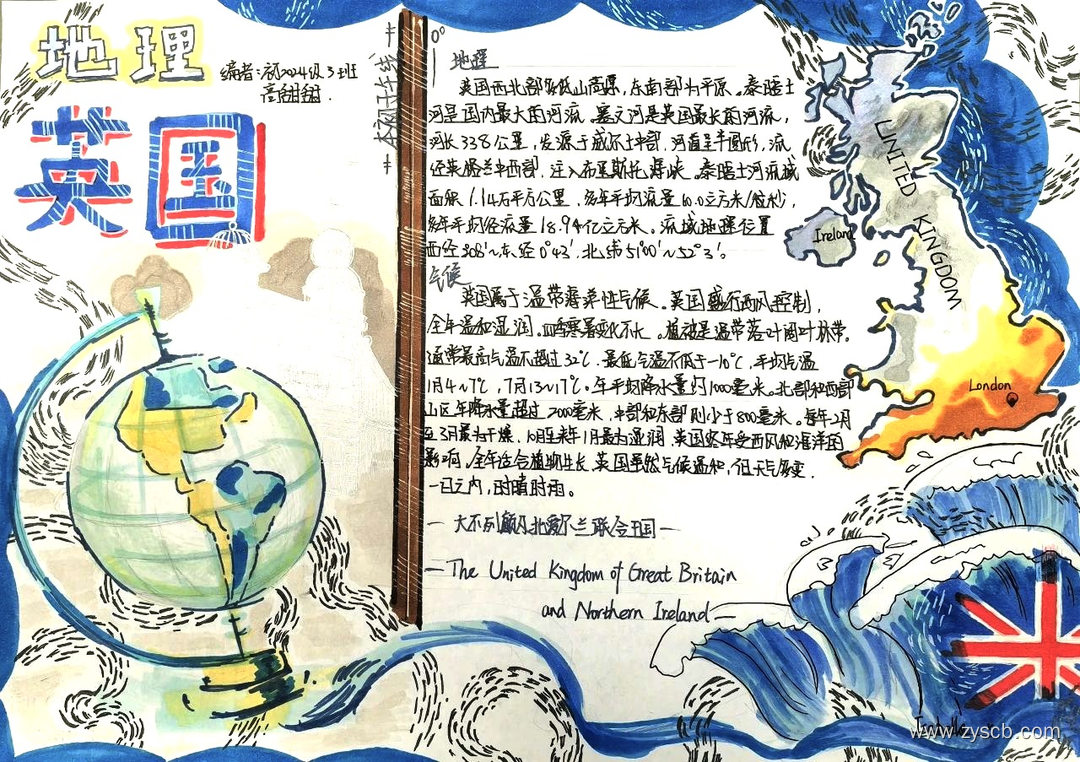 地理
编者:初2024级3班
高甜甜.
英国
本初子午线
0°
地理
英国西北部多低山高原,东南部为平原。泰晤士
河是国内最大的河流。塞文河是英国最长的河流,
河长338公里,发源于威尔士中部,河道呈半圆形,流
经英格兰中西部,注入布里斯托海峡。泰晤士河流域
面积1.14万平方公里,多年平均流量60.0立方米/(秒),
多年平均径流量18.94亿立方米。流域地理位置
西经308′~东经0°43′,北纬5100′~52°3′。
气候
英国属于温带海洋性气候。英国盛行西风控制,
全年温和湿润,四季寒暑变化不大。植被是温带落叶阔叶林带。
通常最高气温不超过32℃,最低气温不低于-10℃,平均气温
1月4~7℃,7月13~17℃。年平均降水量约1000毫米。北部和西部
山区年降水量超过2000毫米,中部和东部则少于800毫米。每年2月
至3月最为干燥,10月至来年1月最为湿润,英国终年受西风和海洋的
影响。全年适合植物生长,英国虽然气候温和,但天气多变.
一日之内,时晴时雨。
—大不列颠及北爱尔兰联合王国—
—The United Kingdom of Great Britain
and Northern Ireland—
UNITED KINGDOM
Ireland
London
www.zyscb.com